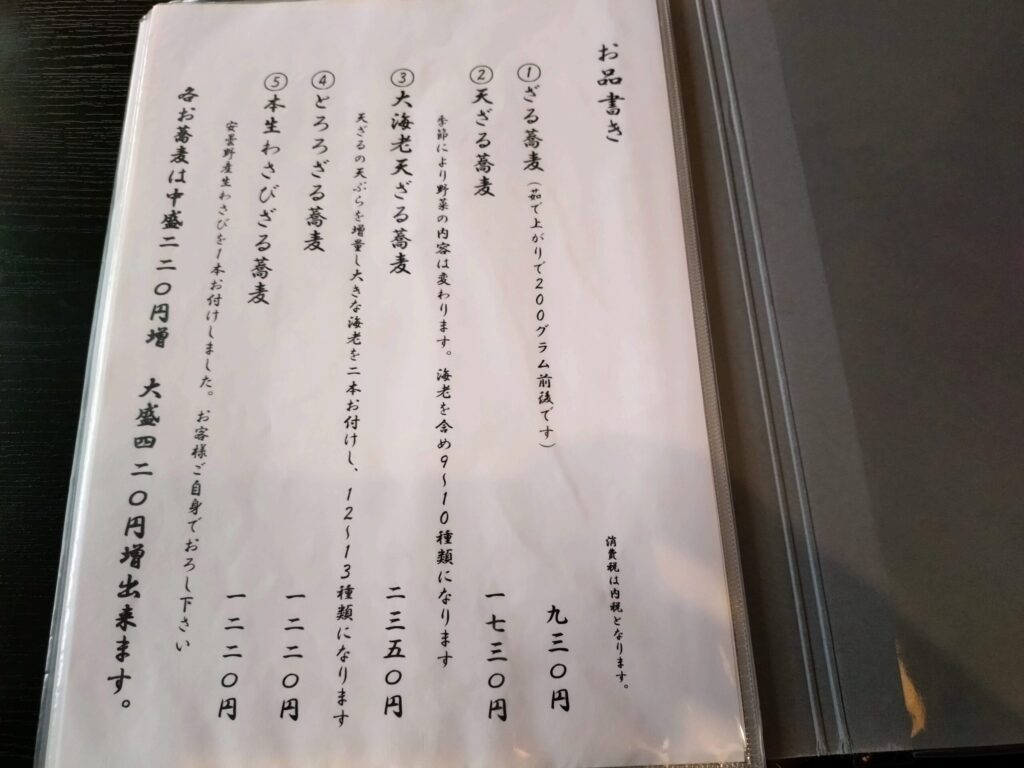 お品書き
消費税は内税となります。
①ざる蕎麦(茹で上がりで200グラム前後です)
九三〇円
②天ざる蕎麦
一七三〇円
季節により野菜の内容は変わります。海老を含め9~10種類になります
③大海老天ざる蕎麦
二三五〇円
天ざるの天ぷらを増量し大きな海老を二本お付けし、12~13種類になります
④とろろざる蕎麦
一二二〇円
⑤本生わさびざる蕎麦
一二二〇円
安曇野産生わさびを1本お付けしました。お客様ご自身でおろし下さい
各お蕎麦は中盛二二〇円増 大盛四二〇円増出来ます。